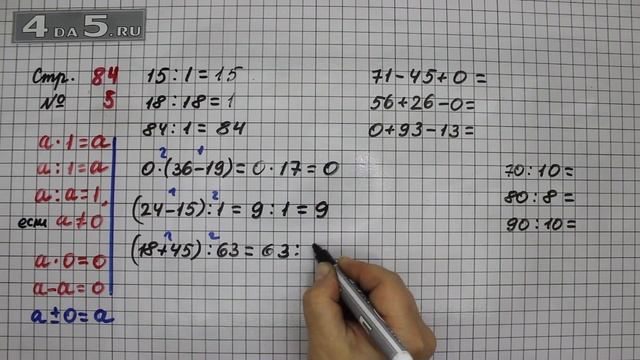 4 DA 5.RU
Стр. 84
№ 5
a · 1 = a
a : 1 = a
a : a = 1,
если a ≠ 0
a · 0 = 0
a - a = 0
a ± 0 = a
15 : 1 = 15
18 : 18 = 1
84 : 1 = 84
2 1
0 · (36 - 19) = 0 · 17 = 0
1 2
(24 - 15) : 1 = 9 : 1 = 9
1 2
(18 + 45) : 63 = 63 :
71 - 45 + 0 =
56 + 26 - 0 =
0 + 93 - 13 =
70 : 10 =
80 : 8 =
90 : 10 =